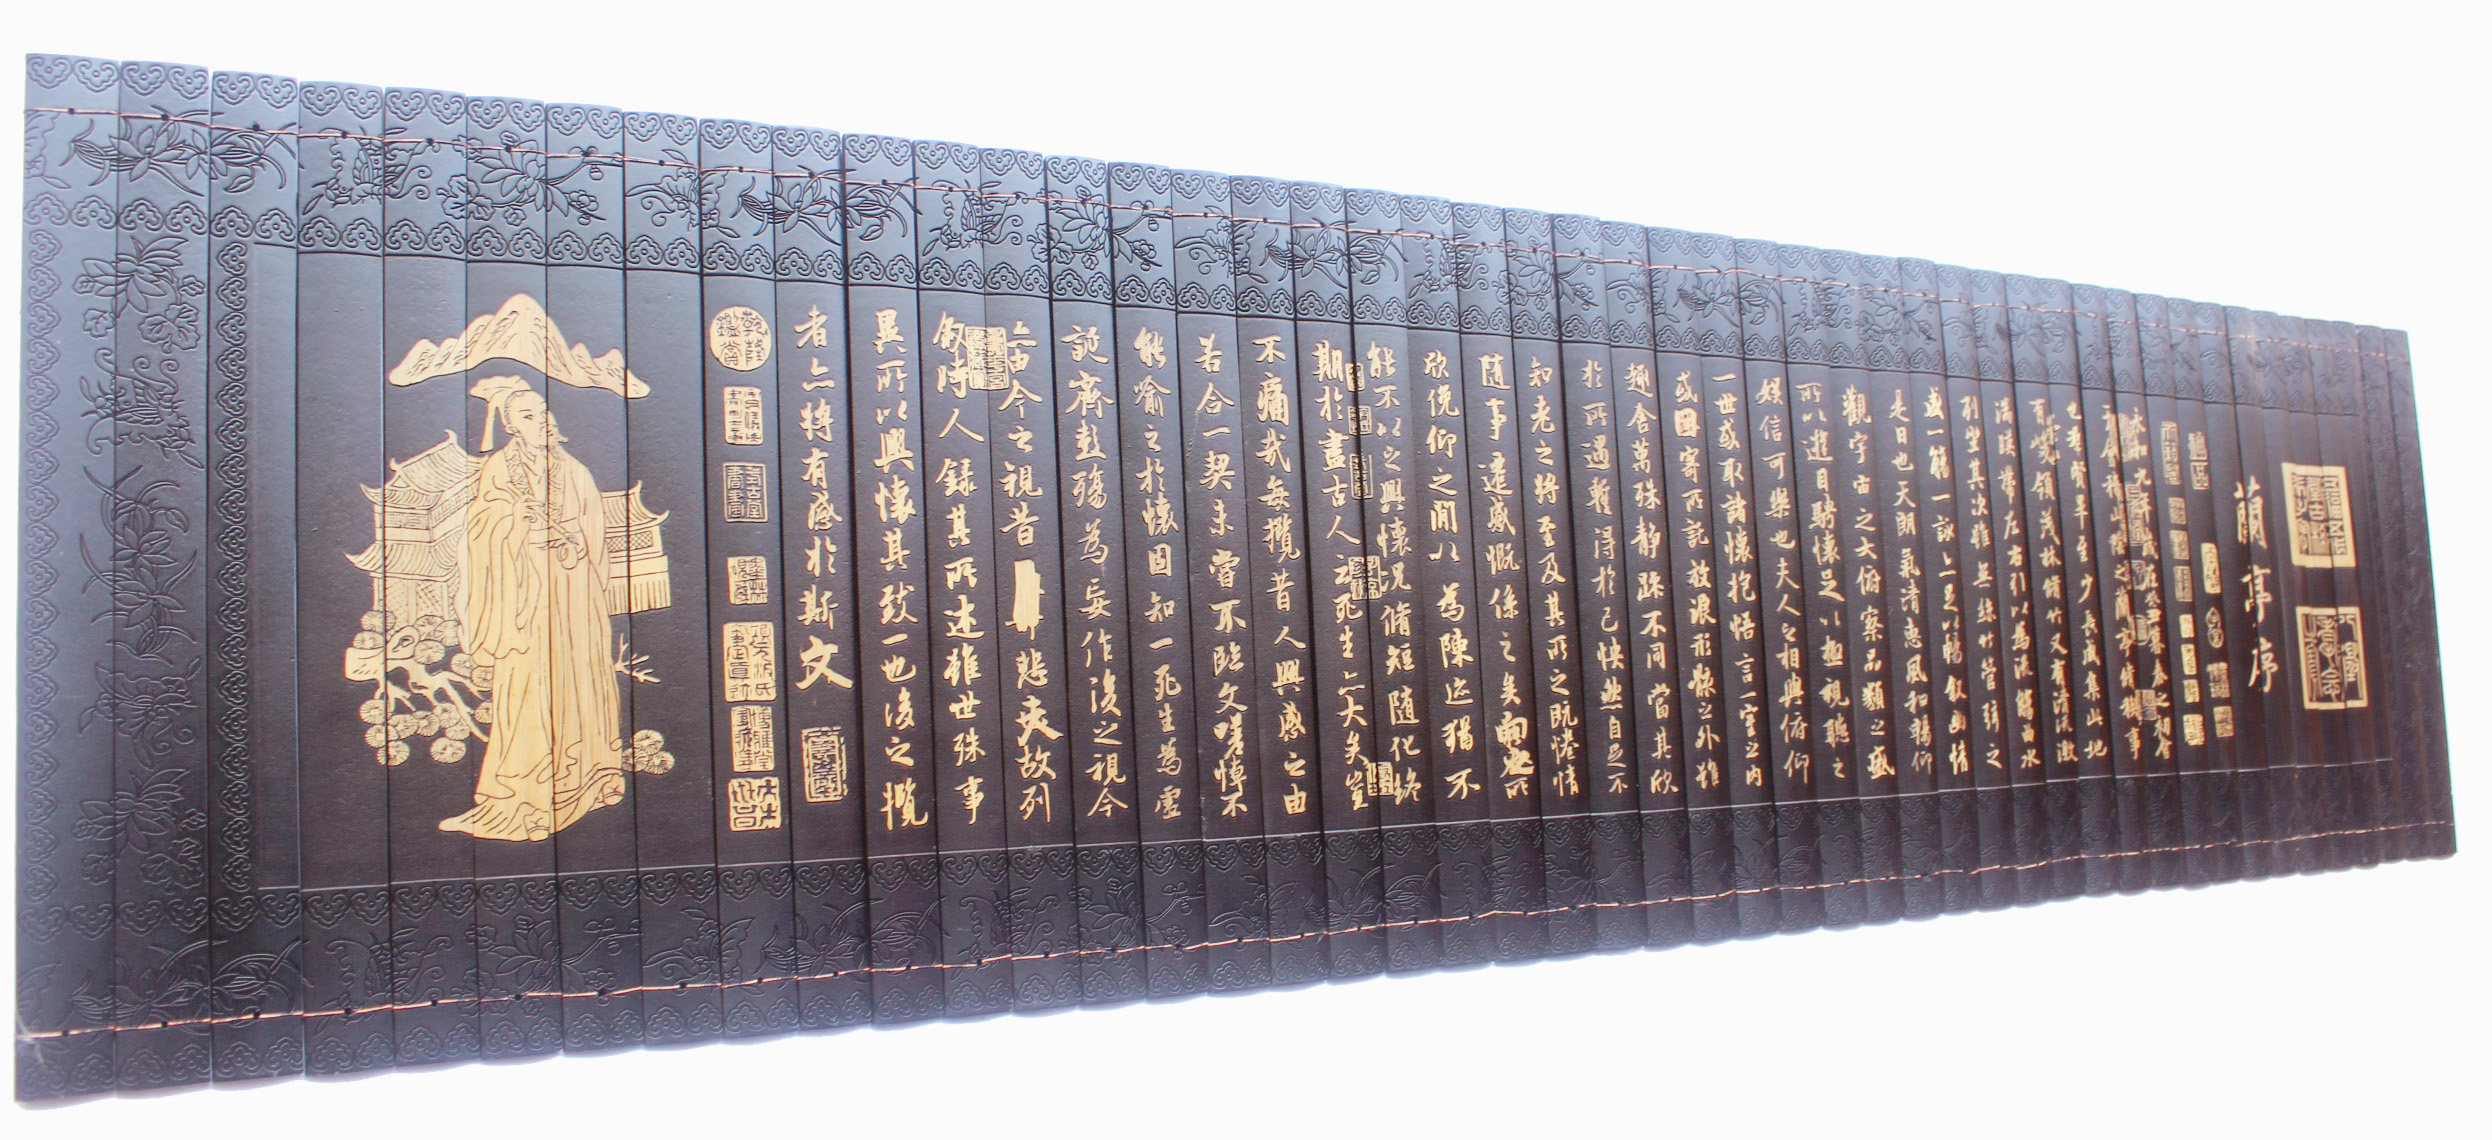 蘭亭序
永和九年歲在癸丑暮春之初會
于會稽山陰之蘭亭脩稧事
也羣賢畢至少長咸集此地
有崇山峻領茂林脩竹又有清流激
湍暎帶左右引以為流觴曲水
列坐其次雖無絲竹管弦之
盛一觴一詠亦足以暢叙幽情
是日也天朗氣清惠風和暢仰
觀宇宙之大俯察品類之盛
所以遊目騁懷足以極視聽之
娛信可樂也夫人之相與俯仰
一世或取諸懷抱悟言一室之內
或因寄所託放浪形骸之外雖
趣舍萬殊靜躁不同當其欣
於所遇暫得於己怏然自足不
知老之將至及其所之既惓情
隨事遷感慨係之矣向之所
欣俛仰之間以為陳迹猶不
能不以之興懷況脩短隨化終
期於盡古人云死生亦大矣豈
不痛哉每攬昔人興感之由
若合一契未嘗不臨文嗟悼不
能喻之於懷固知一死生為虛
誕齊彭殤為妄作後之視今
亦由今之視昔悲夫故列
敘時人錄其所述雖世殊事
異所以興懷其致一也後之攬
者亦將有感於斯文
乾隆鑑賞